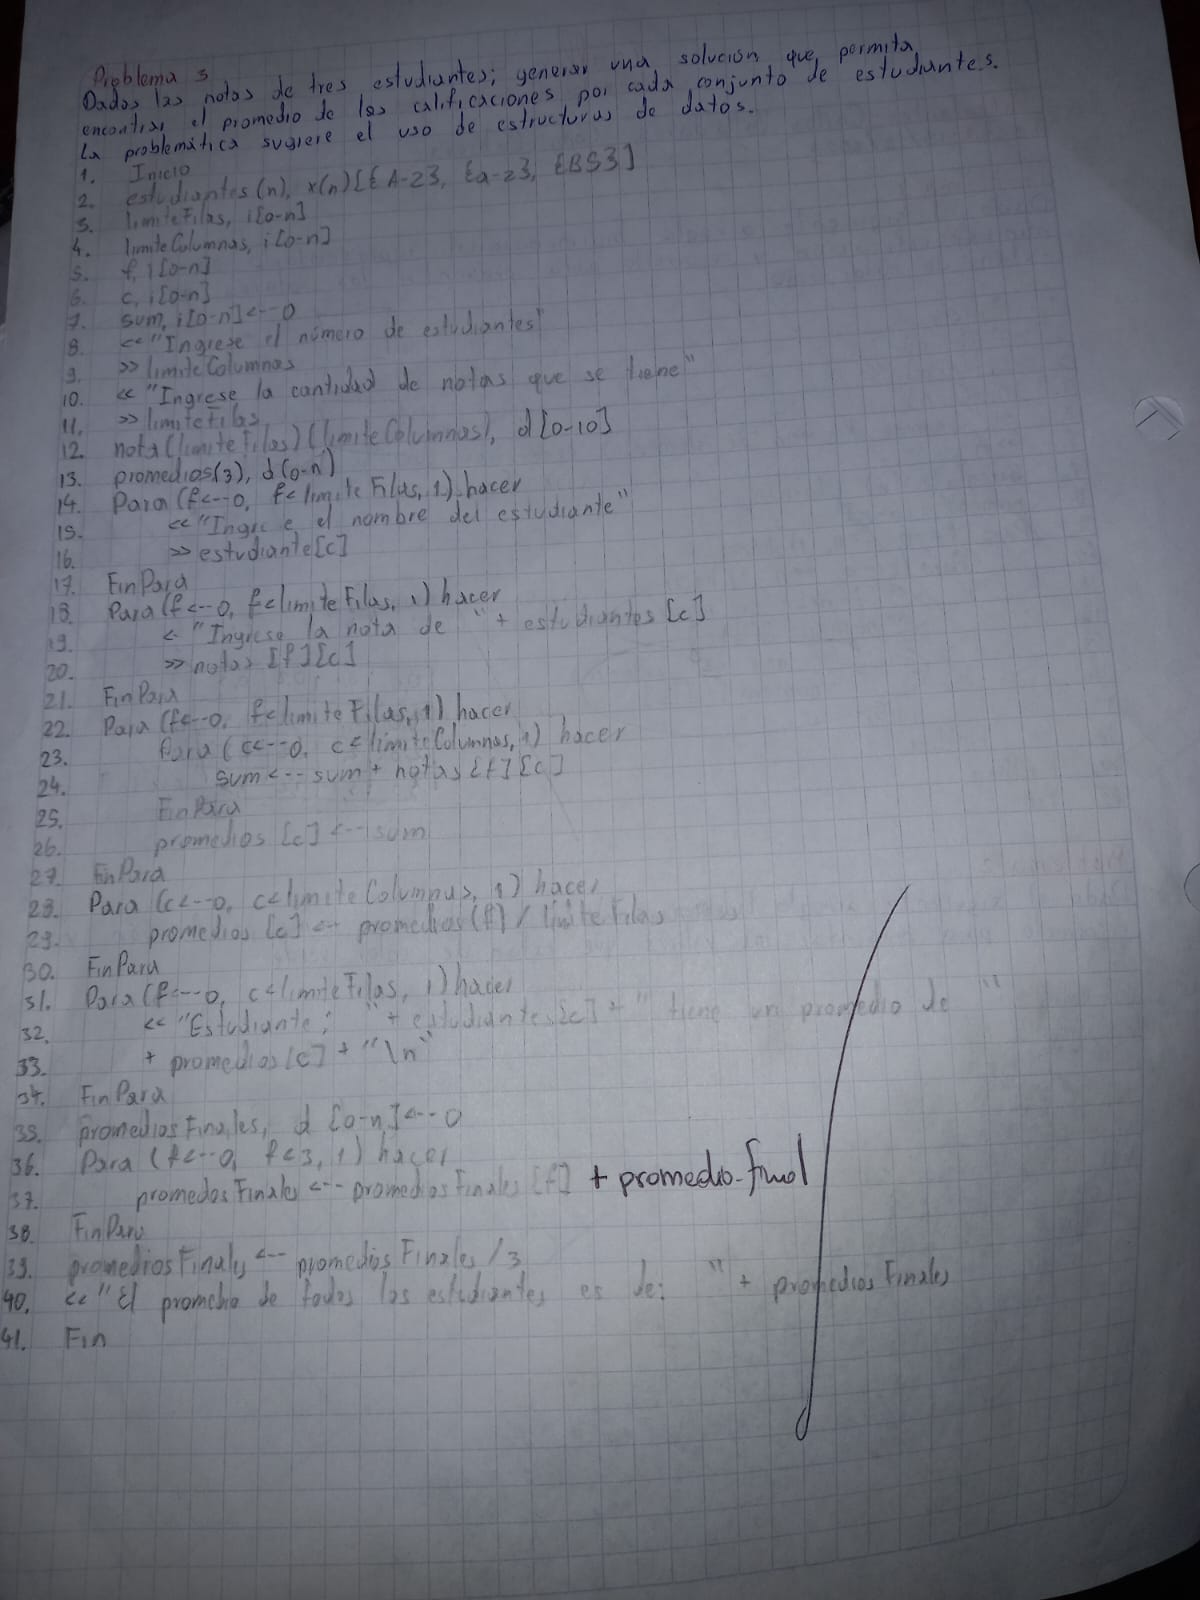 Problema 3
Dados las notas de tres estudiantes; generar una solución que permita
encontrar el promedio de las calificaciones por cada conjunto de estudiantes.
La problemática sugiere el uso de estructuras de datos.
1. Inicio
2. estudiantes(n), x(n)[{A-Z}, {a-z}, {BS}]
3. limiteFilas, i[0-n]
4. limiteColumnas, i[0-n]
5. f, i[0-n]
6. c, i[0-n]
7. sum, i[0-n]<--0
8. << "Ingrese el número de estudiantes"
9. >> limiteColumnas
10. << "Ingrese la cantidad de notas que se tiene"
11. >> limiteFilas
12. nota(limiteFilas)(limiteColumnas), d[0-10]
13. promedios(3), d(0-n)
14. Para (f<--0, f<limiteFilas, 1) hacer
15. << "Ingrese el nombre del estudiante"
16. >> estudiante[c]
17. FinPara
18. Para (f<--0, f<limiteFilas, 1) hacer
19. < "Ingrese la nota de " + estudiantes[c]
20. >> notas [f][c]
21. FinPara
22. Para (f<--0, f<limiteFilas, 1) hacer
23. Para (c<--0, c<limiteColumnas, 1) hacer
24. Sum <-- sum + notas [f][c]
25. FinPara
26. promedios [c] <-- sum
27. FinPara
28. Para (c<--0, c<limiteColumnas, 1) hacer
29. promedios [c] <-- promedios(f) / limiteFilas
30. FinPara
31. Para (f<--0, c<limiteFilas, 1) hacer
32. << "Estudiante: " + estudiantes[c] + " tiene un promedio de "
33. + promedios[c] + "\n"
34. FinPara
35. promediosFinales, d [0-n]<--0
36. Para (f<--0, f<3, 1) hacer
37. promedosFinales <-- promediosFinales [f] + promedio-final
38. FinPara
39. promediosFinales <-- promediosFinales /3
40. << "El promedio de todos los estudiantes es de: " + promediosFinales
41. Fin